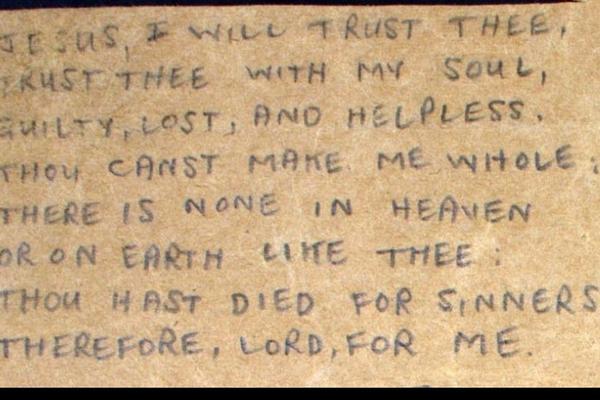 JESUS, I WILL TRUST THEE,
TRUST THEE WITH MY SOUL,
GUILTY, LOST, AND HELPLESS.
THOU CANST MAKE ME WHOLE;
THERE IS NONE IN HEAVEN
OR ON EARTH LIKE THEE:
THOU HAST DIED FOR SINNERS
THEREFORE, LORD, FOR ME.